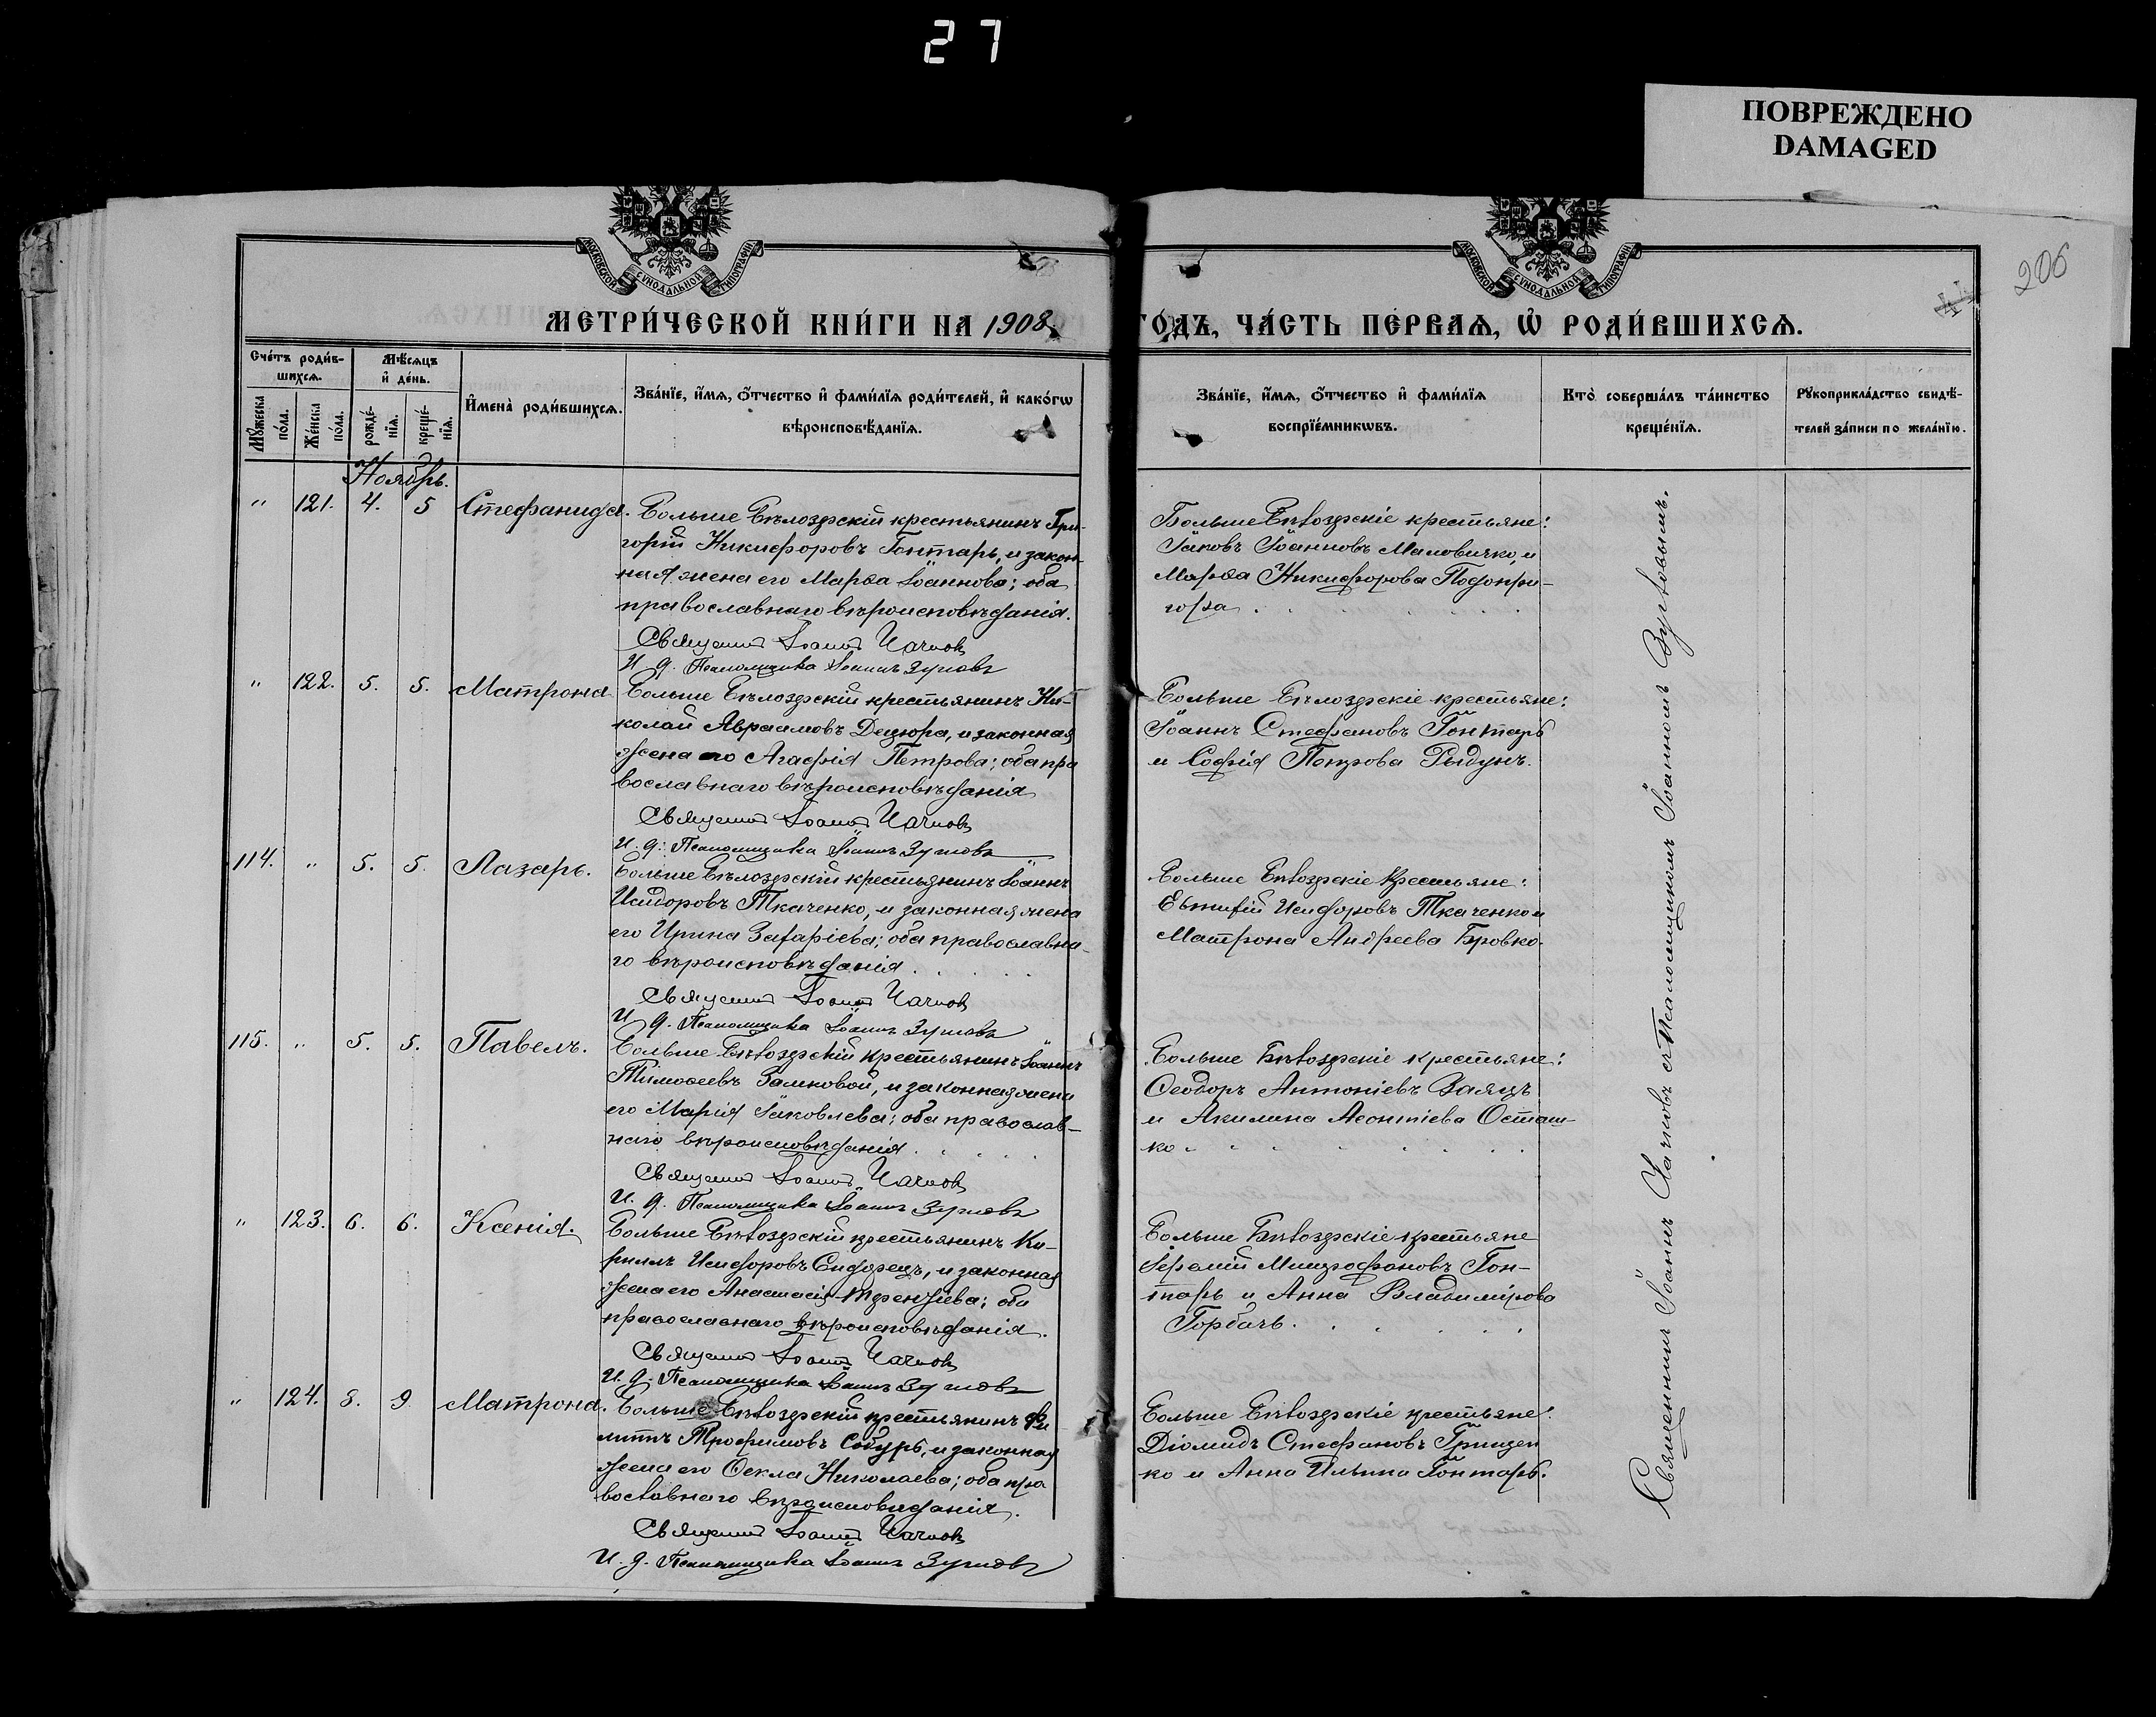 27
ПОВРЕЖДЕНО
DAMAGED
206
44
МОСКОВСКОЙ СѴНОДАЛЬНОЙ ТИПОГРАФІИ
МОСКОВСКОЙ СѴНОДАЛЬНОЙ ТИПОГРАФІИ
МЕТРИ́ЧЕСКОЙ КНИ́ГИ НА 1908
ГОДЪ, ЧА́СТЬ ПЕ́РВАЯ, Ѡ РОДИ́ВШИХСЯ.
Сче́тъ роди́в-
шихся.
Мѣ́сяцъ
и҆ де́нь.
Мꙋ́жеска по́ла.
Же́нска по́ла.
рожде́-нїя.
креще́-нїя.
И҆мена̀ роди́вшихся.
Зва́нїе, и҆́мя, ѻ҆́тчество и҆ фами́лїя роди́телей, и҆ како́гѡ
вѣроисповѣ́данїя.
Зва́нїе, и҆́мя, ѻ҆́тчество и҆ фами́лїя
воспрїе́мникѡвъ.
Кто̀ соверша́лъ та́инство
креще́нїя.
Рꙋкоприкла́дство свидѣ́-
телей за́писи по жела́нїю.
Ноябрь.
" 121. 4. 5 Стефанида. Больше Бѣлозерскій крестьянинъ Гри-
горій Никифоровъ Гонтарь, и закон-
ная жена его Марѳа Іоаннова; оба
православнаго вѣроисповѣданія.
Священникъ Іоаннъ Чачковъ
И. д. Псаломщика Іоаннъ
Больше Бѣлозерскіе крестьяне:
Іаковъ Іоанновъ Маловичко, и
Марѳа Никифорова Подопри-
гора
" 122. 5. 5. Матрона Больше Бѣлозерскій крестьянинъ Ни-
колай Авраамовъ Децюра, и законная
жена его Агафія Петрова; оба пра
вославнаго вѣроисповѣданія
Священникъ Іоаннъ Чачковъ
И. д. Псаломщика Іоаннъ
Больше Бѣлозерскіе крестьяне:
Іоаннъ Стефановъ Гонтарь
и Софія Петрова Рыдунъ.
114. " 5. 5. Лазарь. Больше Бѣлозерскій крестьянинъ Іоаннъ
Исидоровъ Ткаченко, и законная жена
его Ирина Захаріева; оба православна-
го вѣроисповѣданія
Священникъ Іоаннъ Чачковъ
И. д. Псаломщика Іоаннъ
Больше Бѣлозерскіе крестьяне:
Евтихій Исидоровъ Ткаченко и
Матрона Андреева Бровко.
115. " 5. 5. Павелъ. Больше Бѣлозерскій крестьянинъ Іоаннъ
Тимоѳеевъ Замковой, и законная жена
его Марія Іаковлева; оба православ-
наго вѣроисповѣданія
Священникъ Іоаннъ Чачковъ
И. д. Псаломщика Іоаннъ
Больше Бѣлозерскіе крестьяне:
Ѳеодоръ Антоніевъ Заяцъ
и Акилина Леонтіева Осташ-
ко
" 123. 6. 6. Ксенія. Больше Бѣлозерскій крестьянинъ Ки-
риллъ Исидоровъ Сидорецъ, и законная
жена его Анастасія Терентіева; оба
православнаго вѣроисповѣданія.
Священникъ Іоаннъ Чачковъ
И. д. Псаломщика Іоаннъ
Больше Бѣлозерскіе крестьяне
Іеремій Митрофановъ Гон-
тарь и Анна Владимірова
Горбачъ.
" 124. 8. 9 Матрона. Больше Бѣлозерскій крестьянинъ Фи
липпъ Трофимовъ и законная
жена его Ѳекла Николаева; оба пра
вославнаго вѣроисповѣданія.
Священникъ Іоаннъ Чачковъ
И. д. Псаломщика Іоаннъ
Больше Бѣлозерскіе крестьяне:
Діомидъ Стефановъ Грицен
ко и Анна Ильина Гонтарь.
Священникъ Іоаннъ Чачковъ съ Псаломщикомъ Іоанномъ